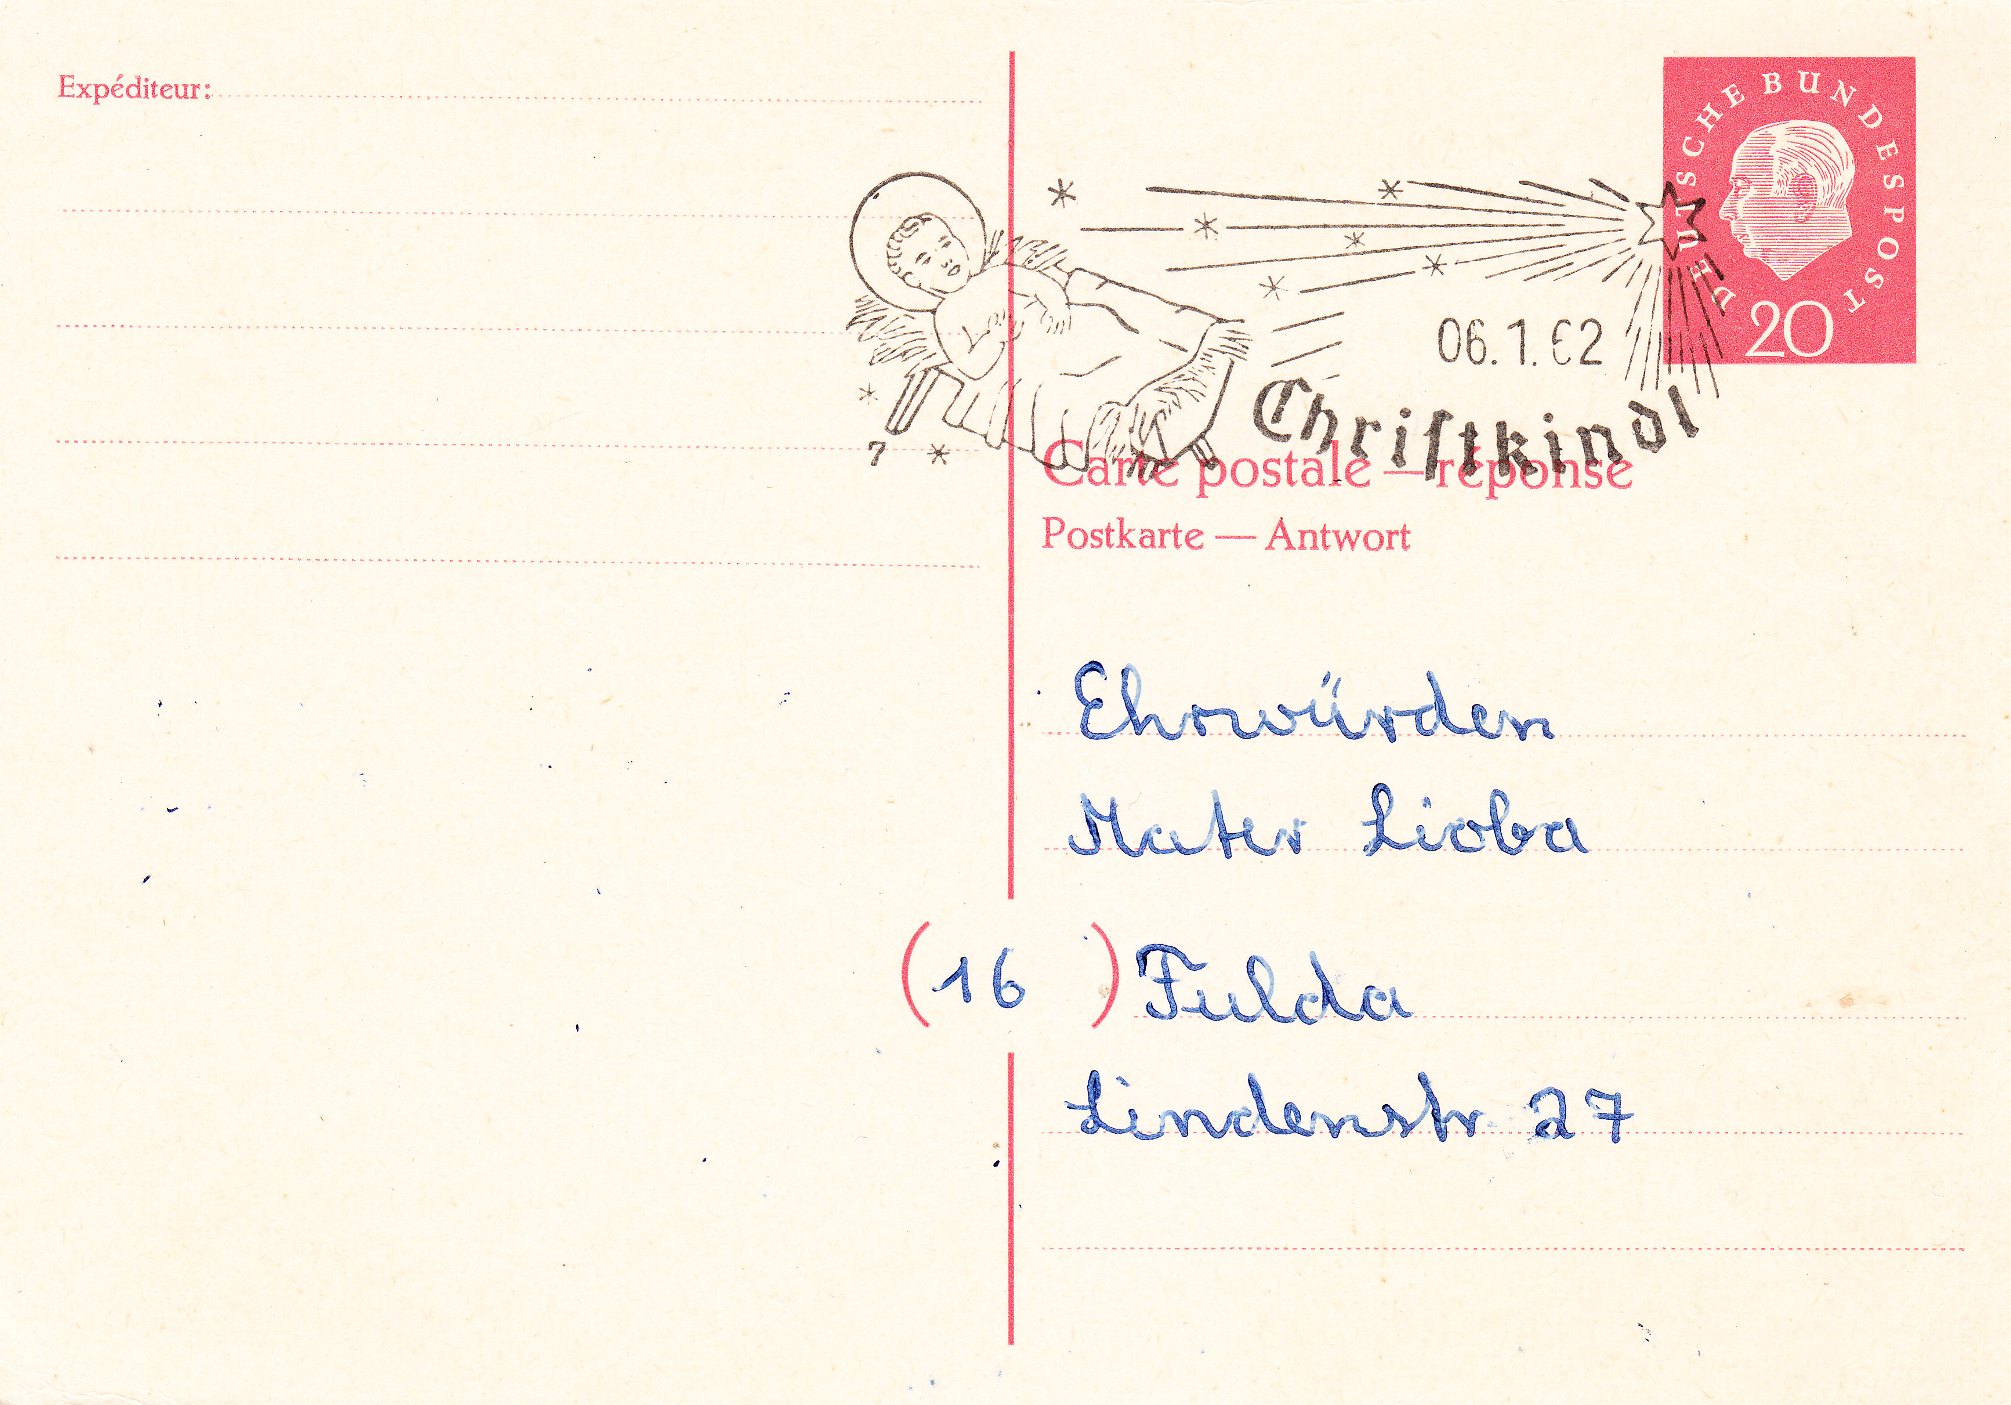 Expéditeur:
DEUTSCHE BUNDESPOST
20
06.1.62
Christkindl
7
Carte postale — réponse
Postkarte — Antwort
Ehrwürden
Mater Lioba
(16 ) Fulda
Lindenstr. 27